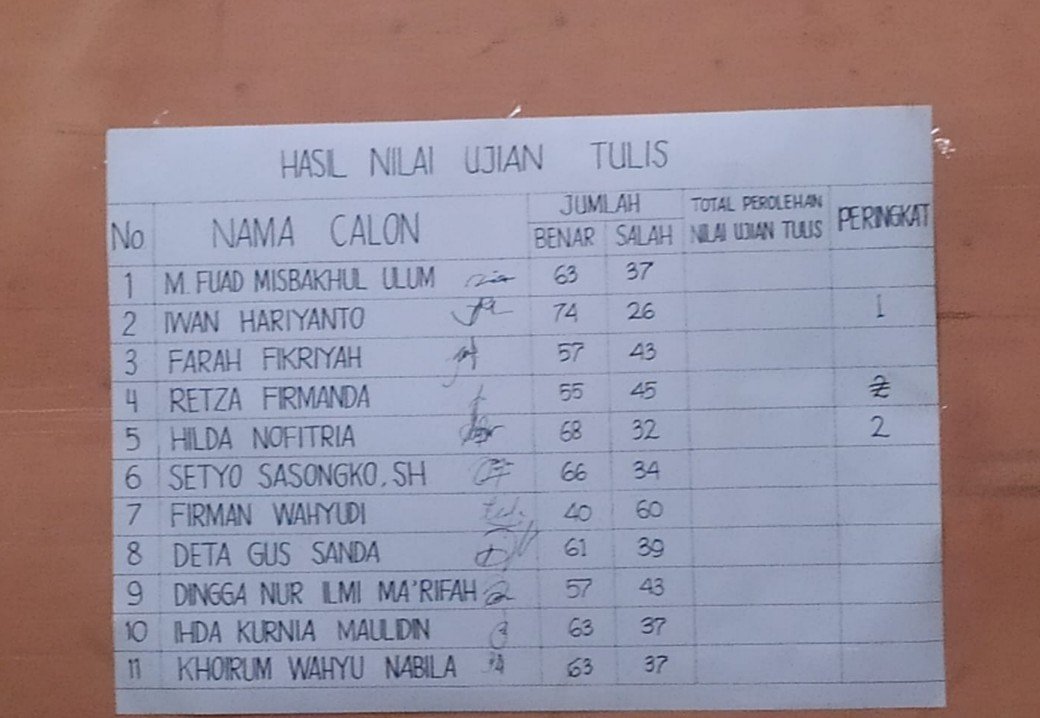 HASIL NILAI UJIAN TULIS
No NAMA CALON JUMLAH BENAR SALAH TOTAL PEROLEHAN NILAI UJIAN TULIS PERINGKAT
1 M. FUAD MISBAKHUL ULUM 63 37
2 IWAN HARIYANTO 74 26 1
3 FARAH FIKRIYAH 57 43
4 RETZA FIRMANDA 55 45
5 HILDA NOFITRIA 68 32 2
6 SETYO SASONGKO, SH 66 34
7 FIRMAN WAHYUDI 40 60
8 DETA GUS SANDA 61 39
9 DINGGA NUR ILMI MA'RIFAH 57 43
10 IHDA KURNIA MAULIDIN 63 37
11 KHOIRUM WAHYU NABILA 63 37